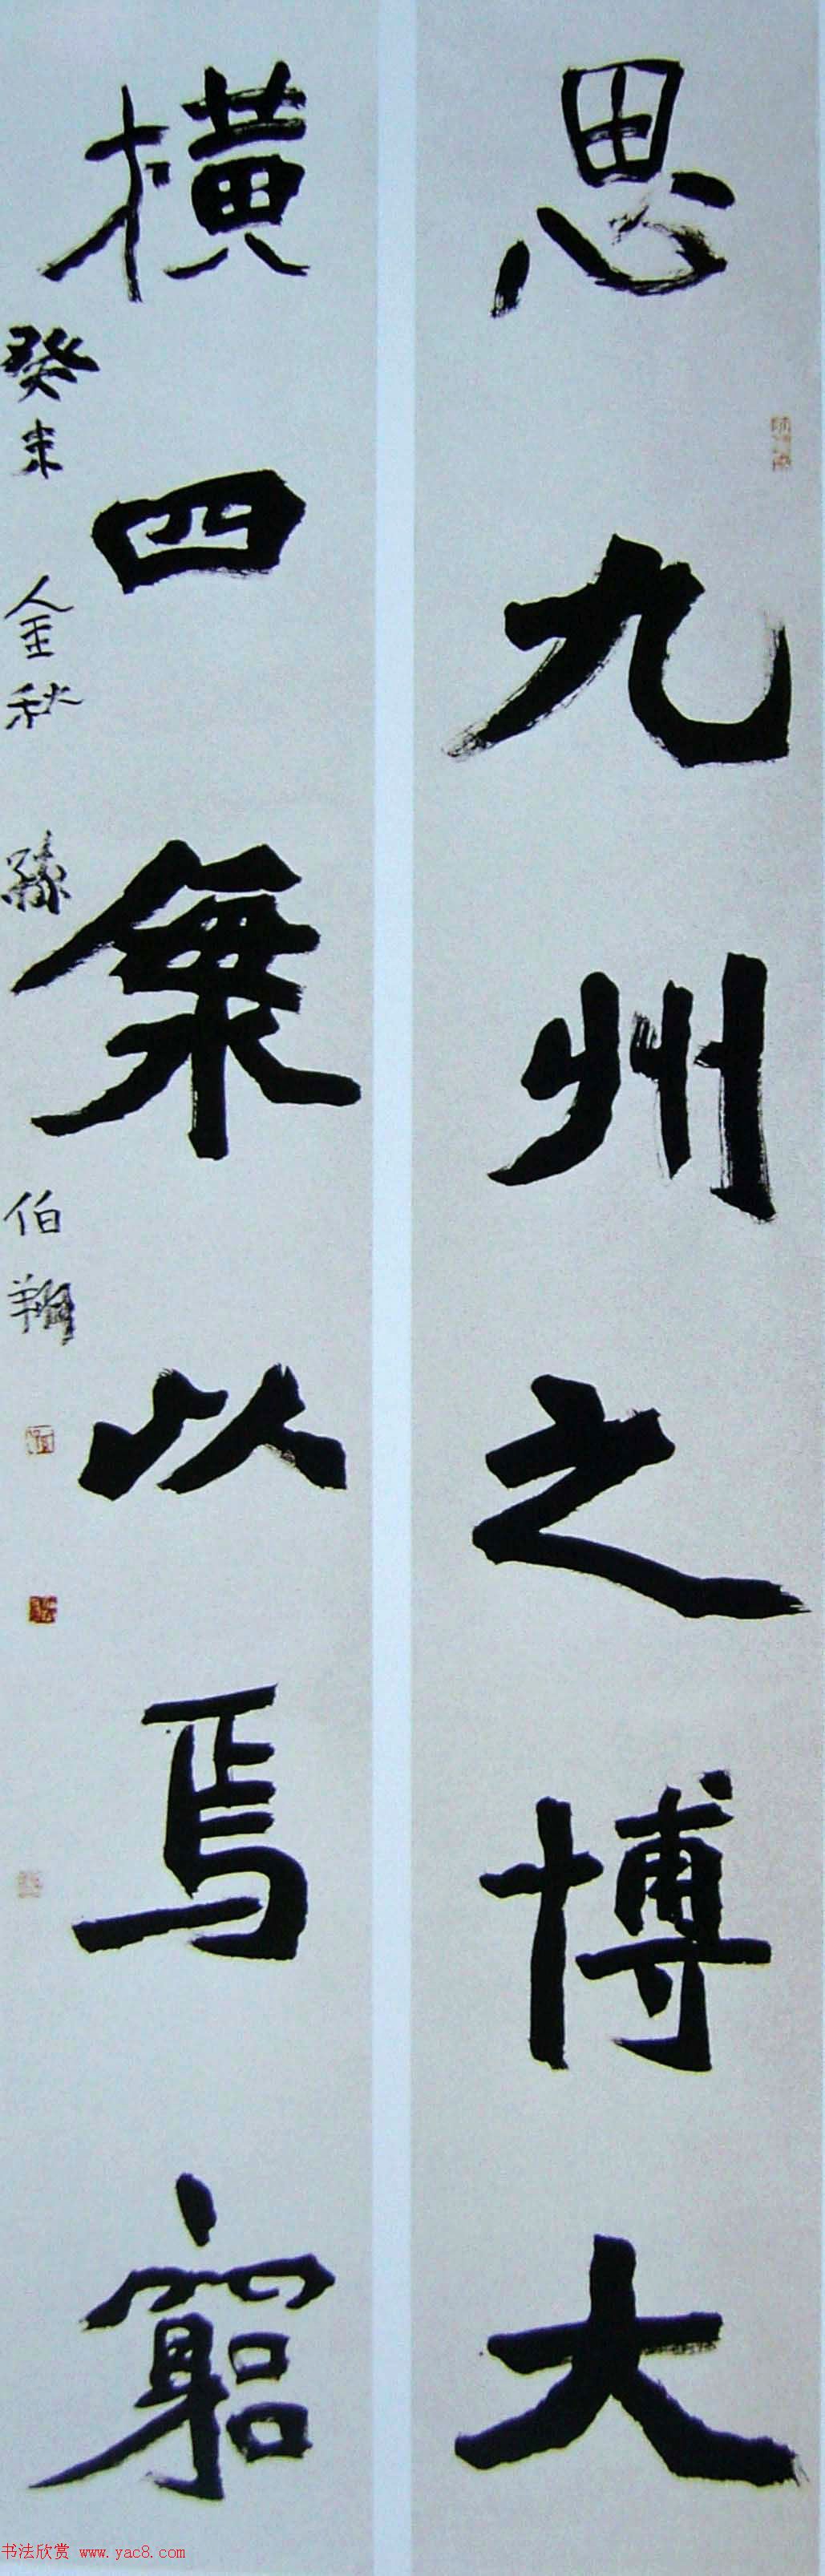 思九州之博大
橫四海以焉窮
癸未 金秋 孫伯翔
书法欣赏 www.yac8.com